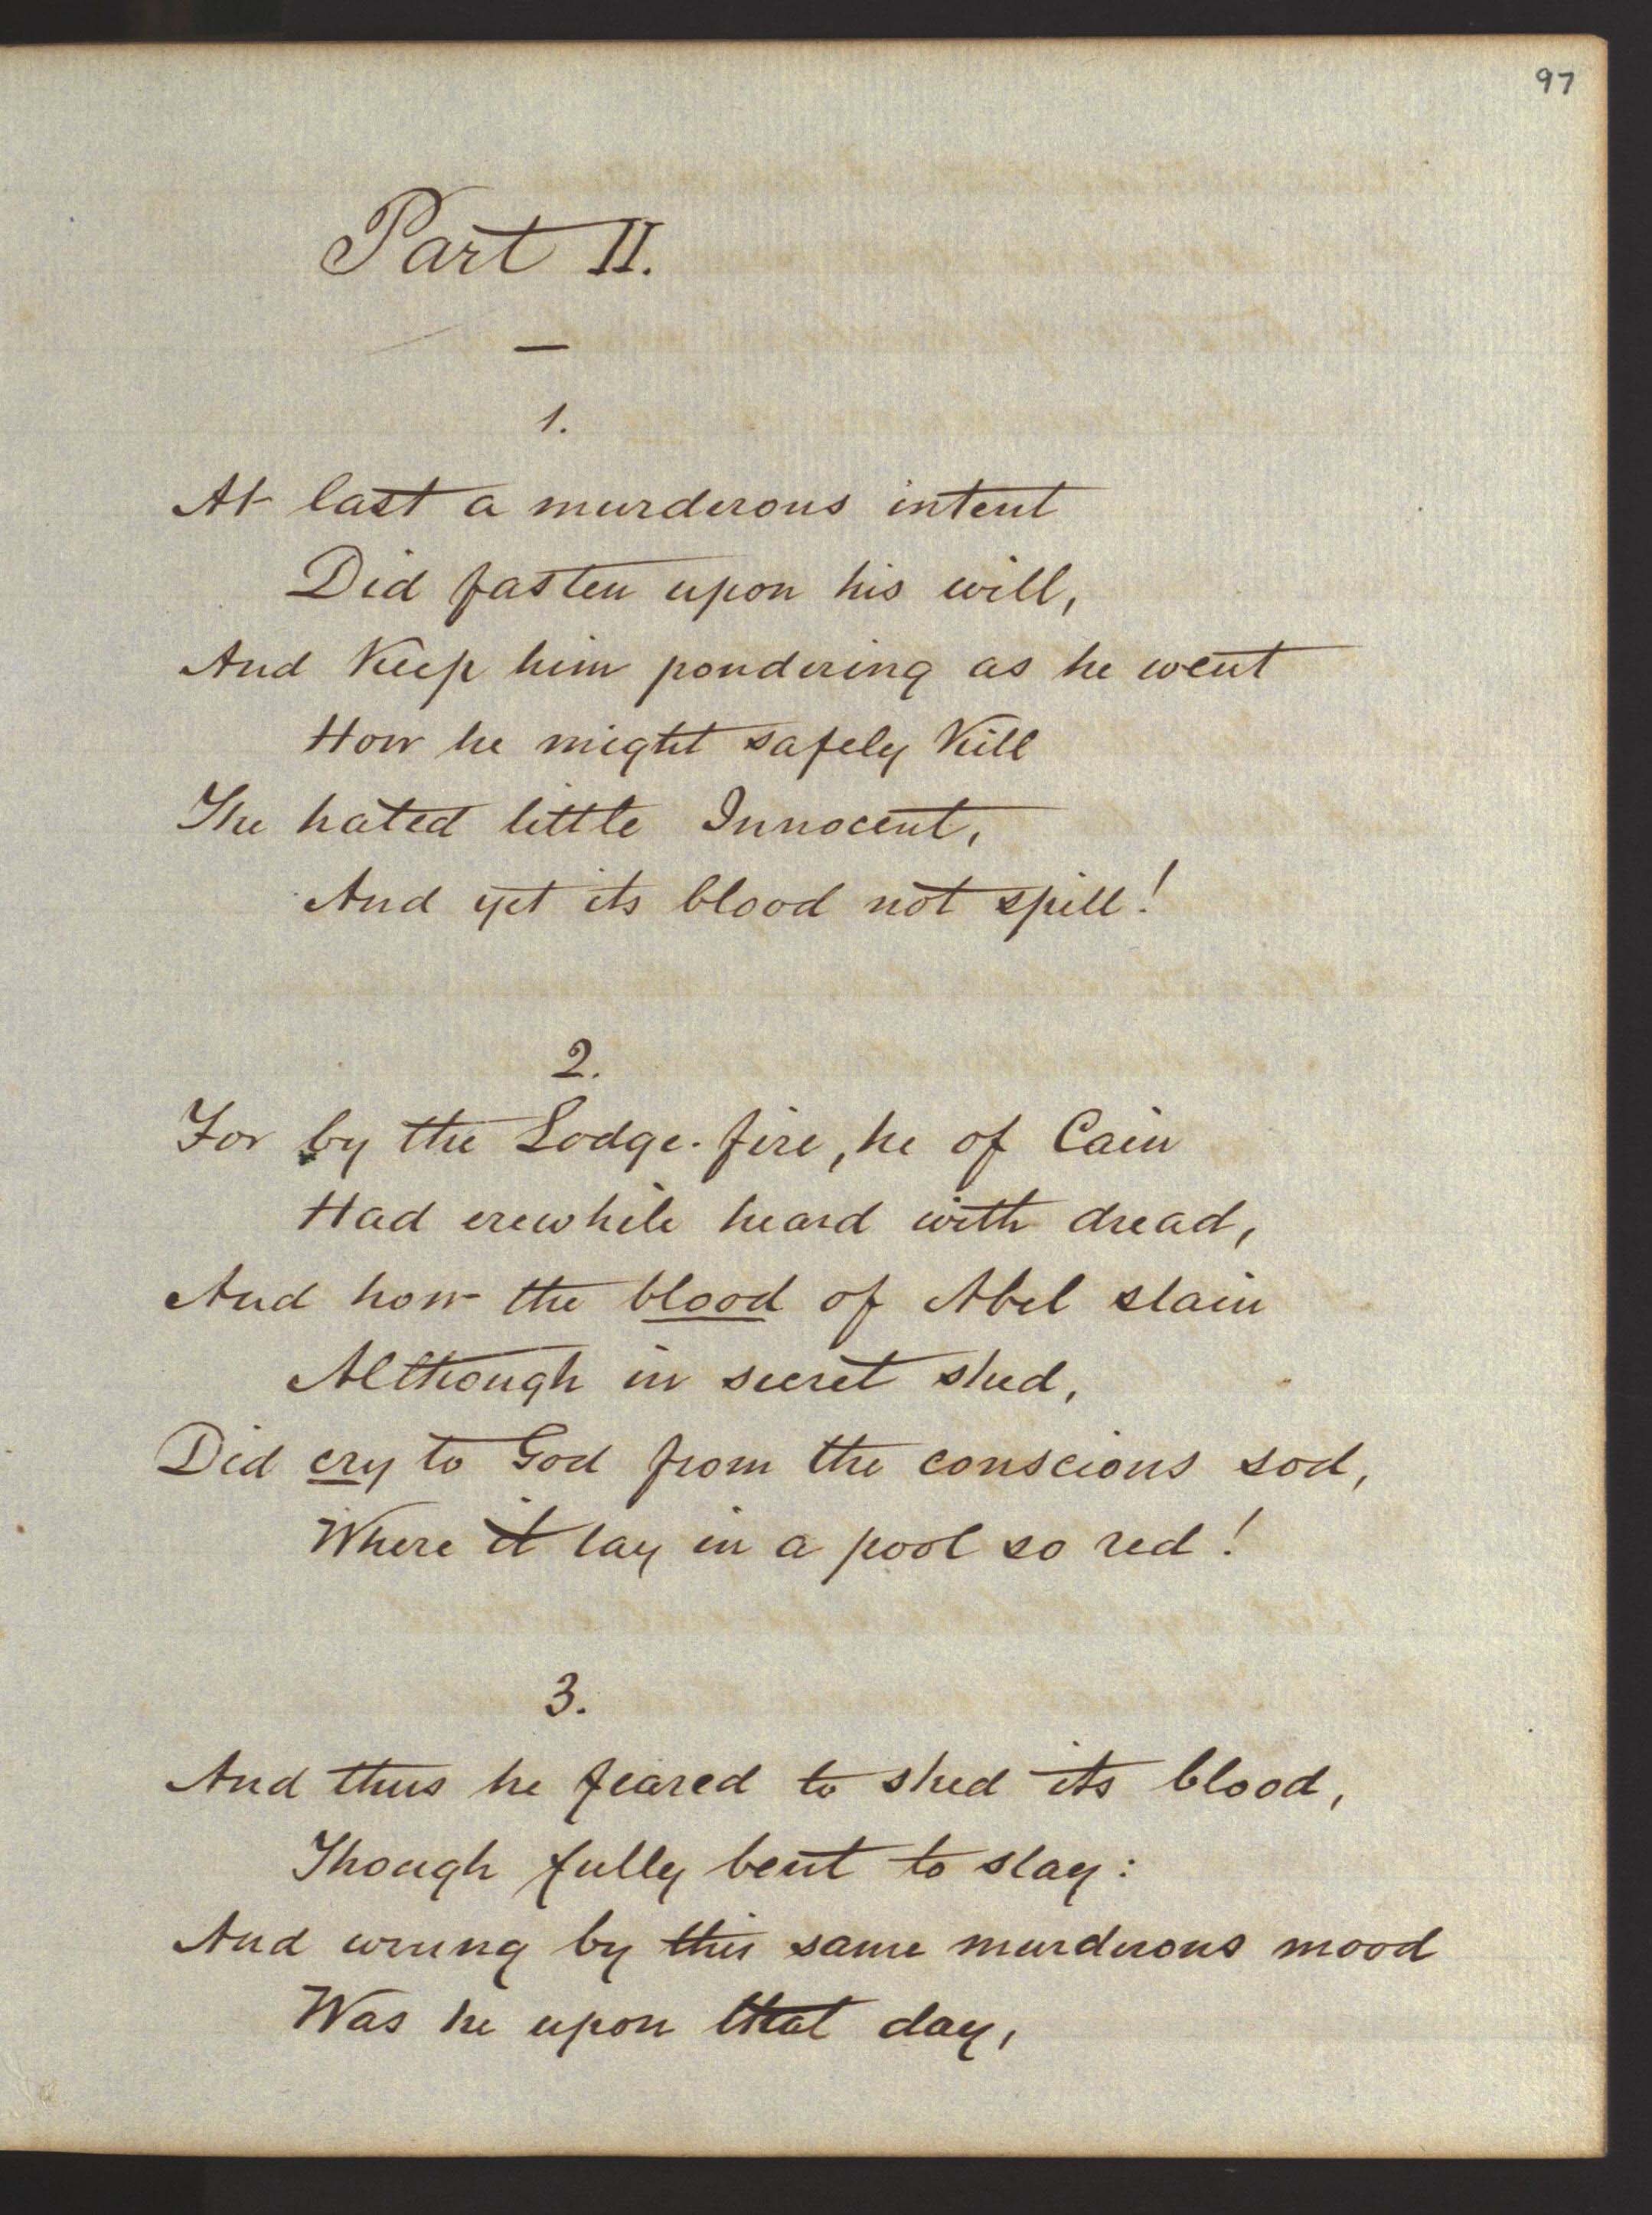 97
Part II.
—
1.
At last a murderous intent
Did fasten upon his will,
And Keep him pondering as he went
How he might safely Kill
The hated little Innocent,
And yet its blood not spill!
2.
For by the Lodge-fire, he of Cain
Had erewhile heard with dread,
And how the blood of Abel slain
Although in secret shed,
Did cry to God from the conscious sod,
Where it lay in a pool so red!
3.
And thus he feared to shed its blood,
Though fully bent to slay:
And wrung by this same murderous mood
Was he upon that day,